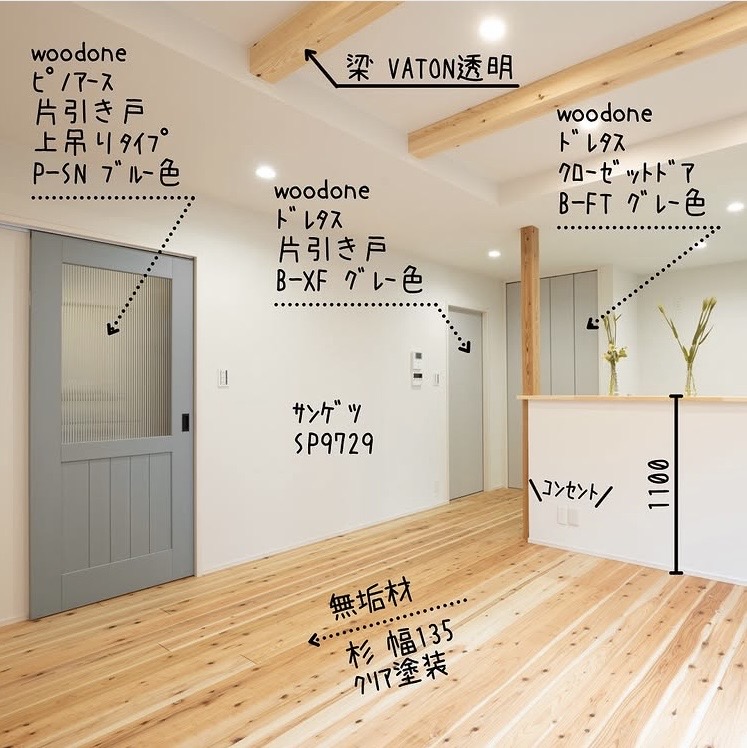 woodone
ピノアース
片引き戸
上吊りタイプ
P-SN ブルー色
梁 VATON透明
woodone
ドレタス
クローゼットドア
B-FT グレー色
woodone
ドレタス
片引き戸
B-XF グレー色
サンゲツ
SP9729
\コンセント/
1100
無垢材
杉 幅135
クリア塗装